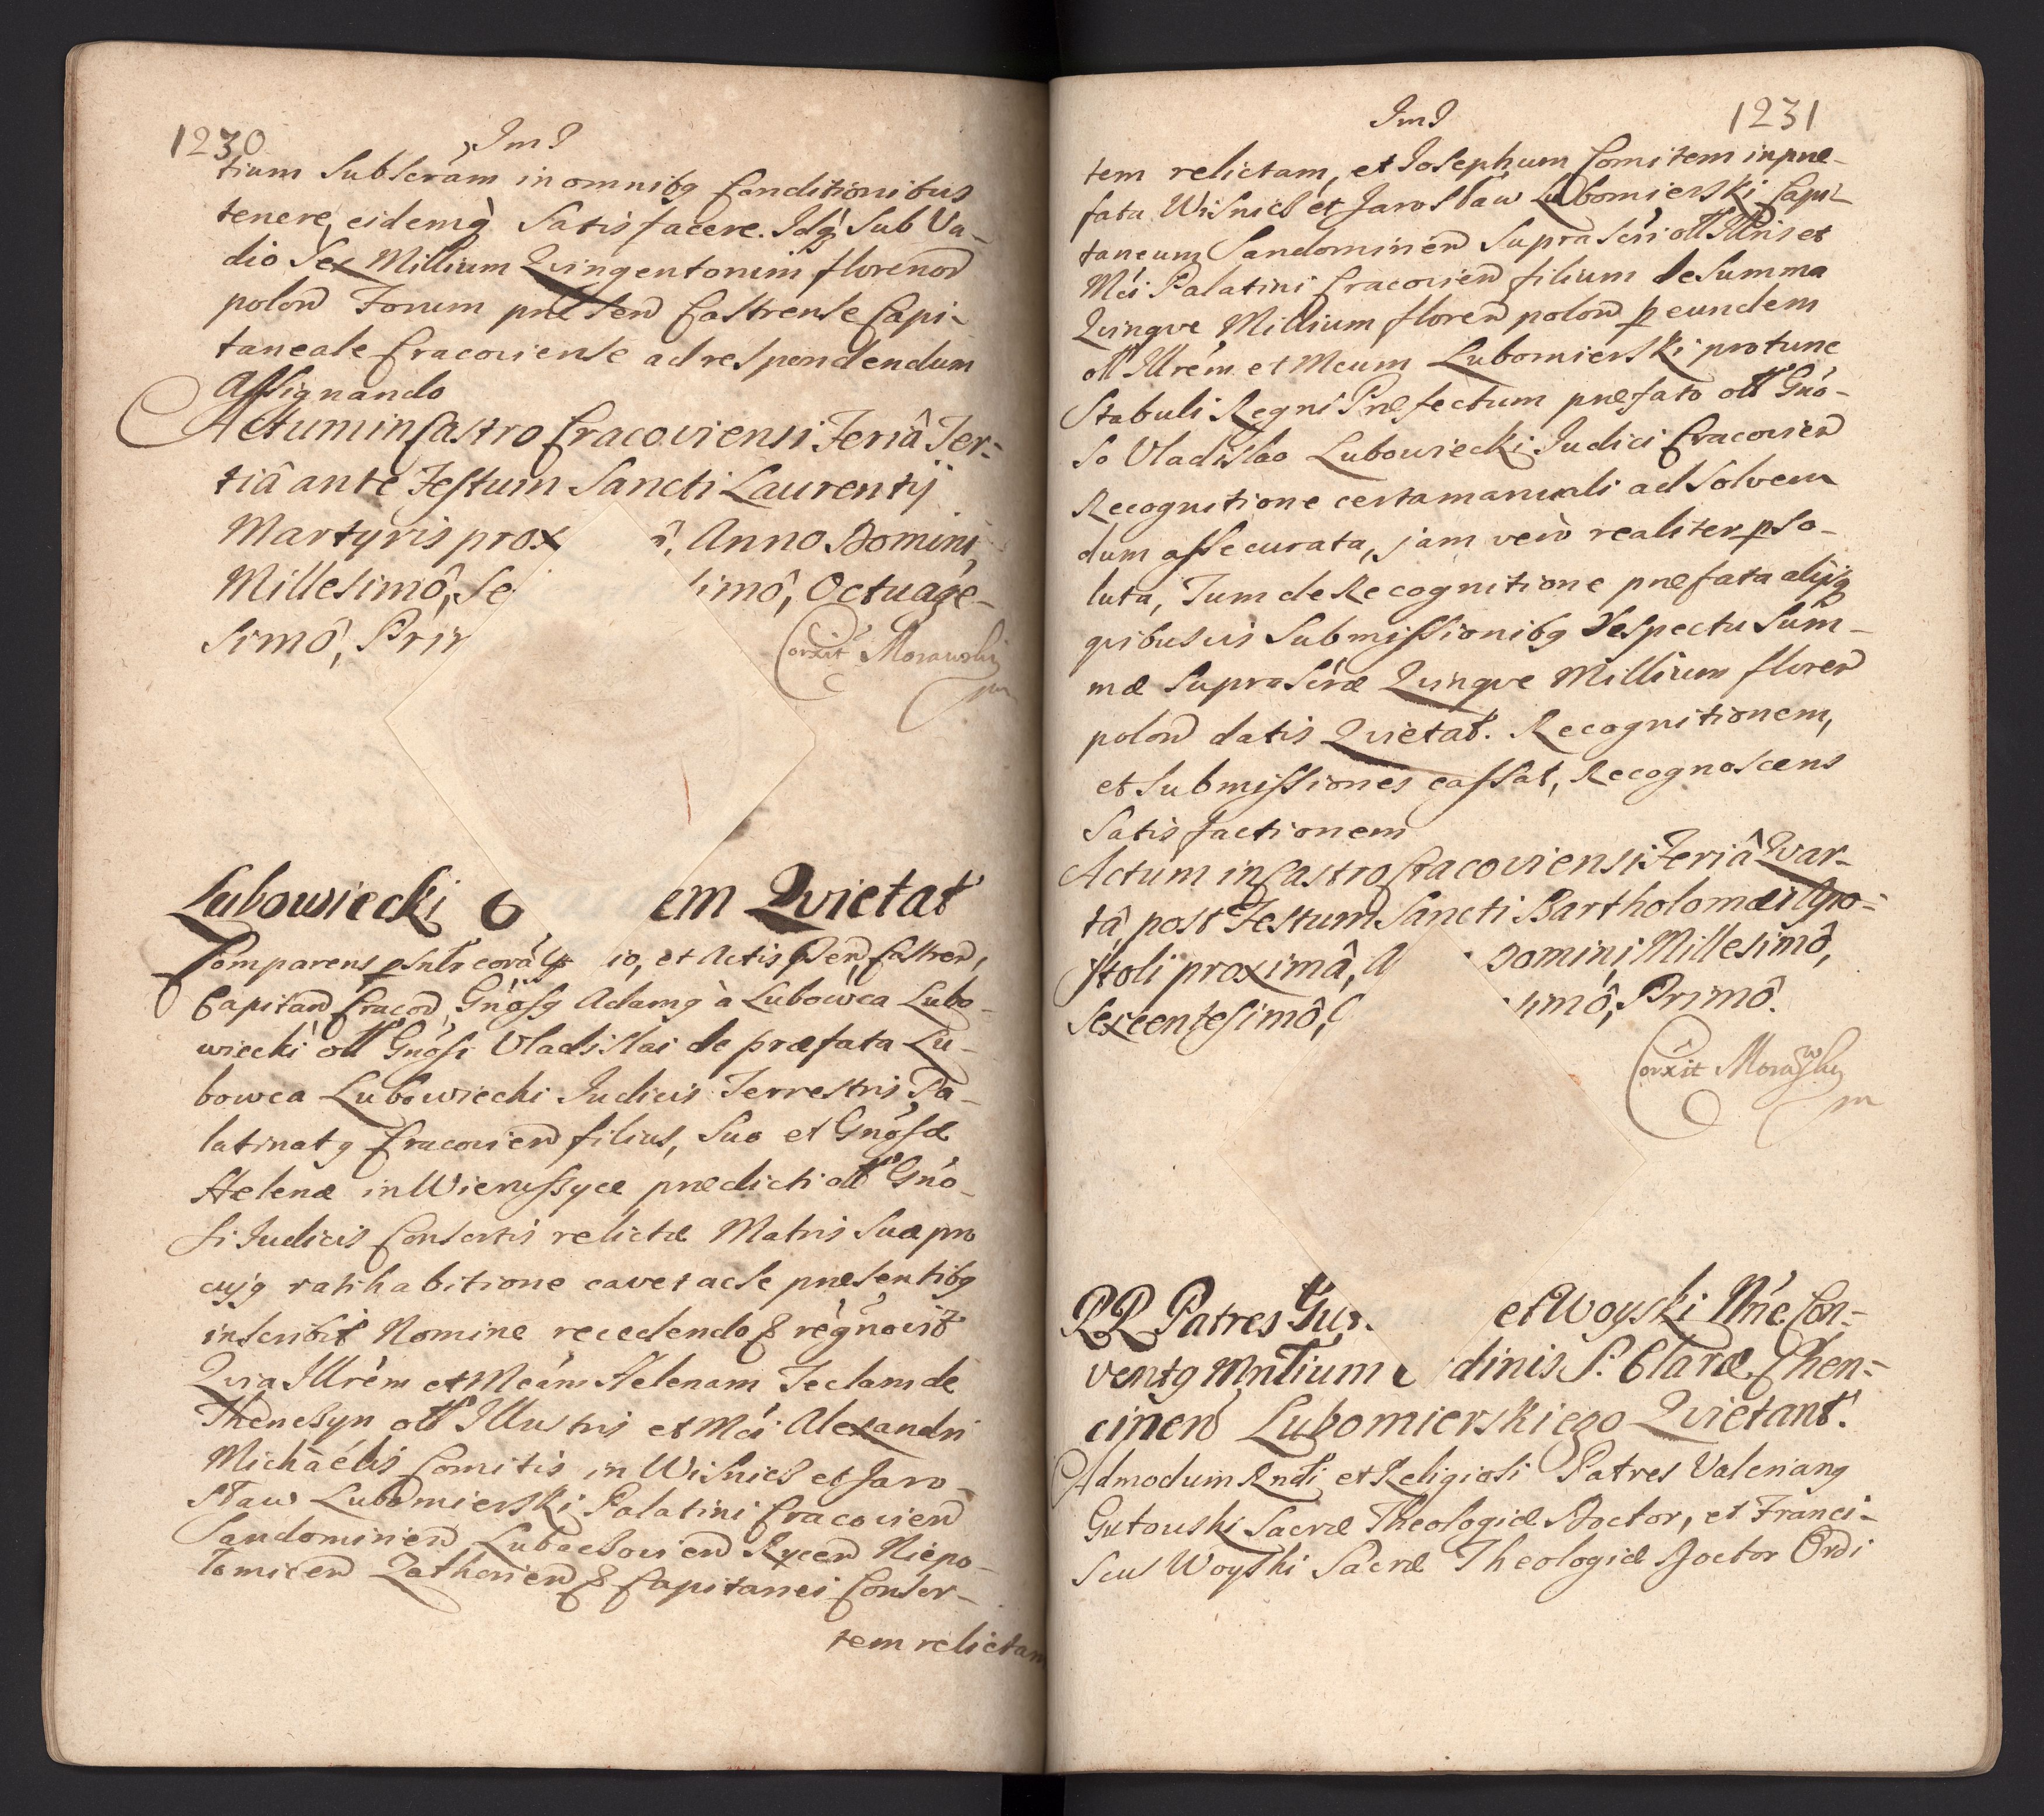 1230
JmJ
tium Subscrám in omnibq Conditionibus
tenere, eidemq̀ Satisfacere. Idq̀ Sub Va-
dio Sex Millium Qvingentorum floren̄
polon̄ Forum præsen̄ Castrense Capi-
taneale Cracoviense ad respondendum
Assignando
Actum in Castro Cracoviensi Feriâ Ter-
tiâ ante Festum Sancti Laurentij
Martyris prox â, Anno Domini,
Millesimô, Se imô, Octuage-
simô, Prim
Corxit Morawski
mp
Lubowiecki C em Qvietat
Comparens psnlr corã io, et Actis psen̄, Castren̄,
Capitan̄ Cracov̄, Gnosq Adamq à Lubowca Lubo-
wiecki olī Gnosi Vladislai de præfata Lu-
bowca Lubowiecki Iudicis Terrestris Pa-
latinatq Cracovien̄ filius, Suo et Gnosæ
Helenæ in Wierussyce prædicti olī Gno-
si Iudicis Consortis relictæ Matris Suæ pro
cujq ratihabitione cavet acse præsentibq
inscribit Nomine recedendo & regnovit
Qvia Illrém et Mcám Helenam Teclam de
Thenesyn olī Illustris et Mci Alexandri
Michaélis Comitis in Wisnicz et Jaro-
sław Lubomierski Palatini Cracovien̄
Sandomirien̄ Lubaczovien̄ Rycen̄ Niepo-
łomicen̄ Zathorien̄ & Capitanei Consor-
tem relictam
JmJ
1231
tem relictam, et Josephum Comitem in præ-
fata Wisnicz et Jarosław Lubomierski Capi-
taneum Sandomirien̄ Suprascri olī Illris et
Mci Palatini Cracovien̄ filium de Summa
Qvinqve Millium floren̄ polon̄ p eundem
olī Illrém et Mcum Lubomierski pro tunc
Stabuli Regni Præfectum præfato olī Gno-
so Vladislao Lubowiecki Iudici Cracovien̄
Recognitione certa manuali ad Solven
dum assecurata, jam verò realiter pso-
luta, Tum de Recognitione præfata alijsq
qvibusvis Submissionibq Respectu Sum-
mæ Suprascræ Qvinqve Millium floren̄
polon̄ datis Qvietat. Recognitionem,
et Submissiones cassat, Recognoscens
Satisfactionem
Actum in Castro Cracoviensi Feriâ Qvar-
tâ post Festum Sancti Bartholomæi Apo-
stoli proximâ, A Domini Millesimô,
Sexcentesimô, O simô, Primô.
Corxit Morawski
mp
RR Patres Gut et Woyski Nne Con-
ventq Mnlium dinis S: Claræ Chen-
cinen̄ Lubomierskiego Qvietant.
Admodum Rndi et Religiosi Patres Valerianq
Gutowski Sacræ Theologiæ Doctor, et Franci-
scus Woyski Sacræ Theologiæ Doctor Ordi